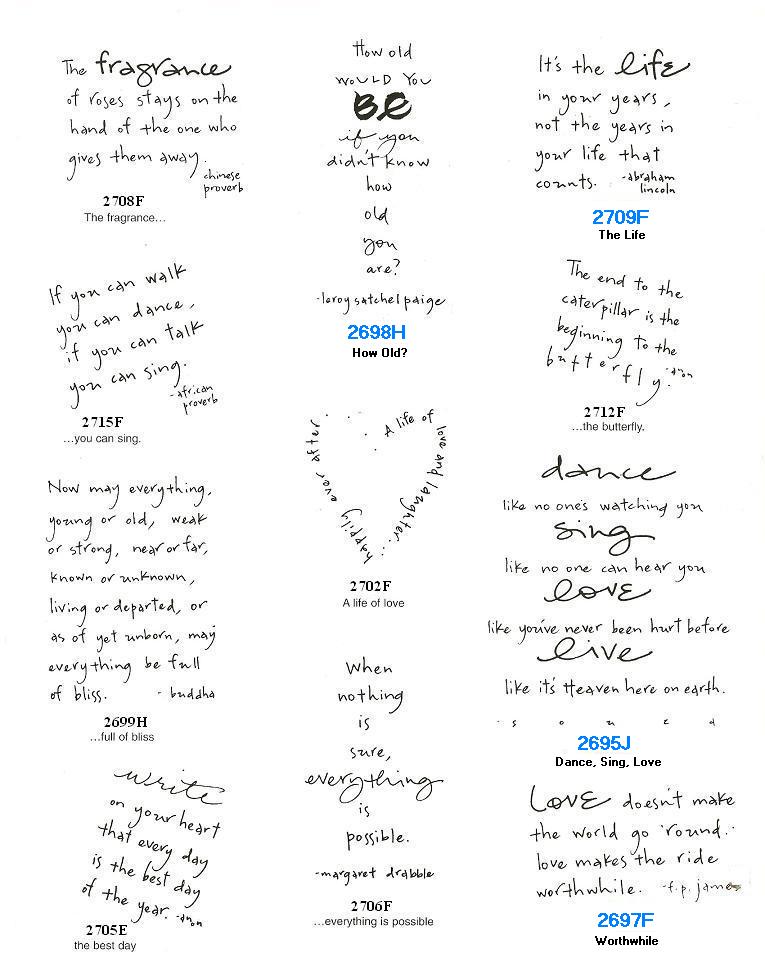 The fragrance
of roses stays on the
hand of the one who
gives them away.
chinese
proverb
2708F
The fragrance...
If you can walk
you can dance,
if you can talk
you can sing.
-african
proverb
2715F
...you can sing.
Now may everything,
young or old, weak
or strong, near or far,
known or unknown,
living or departed, or
as of yet unborn, may
everything be full
of bliss. - buddha
2699H
...full of bliss
write
on your heart
that every day
is the best day
of the year. -anon
2705E
the best day
How old
WOULD YOU
BE
if you
didn't know
how
old
you
are?
-leroy satchel paige
2698H
How Old?
A life of love and laughter... happily ever after.
2702F
A life of love
When
nothing
is
sure,
everything
is
possible.
-margaret drabble
2706F
...everything is possible
It's the life
in your years,
not the years in
your life that
counts. -abraham
lincoln
2709F
The Life
The end to the
caterpillar is the
beginning to the
butterfly. -anon
2712F
...the butterfly.
dance
like no one's watching you
sing
like no one can hear you
love
like you've never been hurt before
live
like it's Heaven here on earth.
- s o u z a
2695J
Dance, Sing, Love
LOVE doesn't make
the world go 'round.
love makes the ride
worthwhile. -f.p. james
2697F
Worthwhile